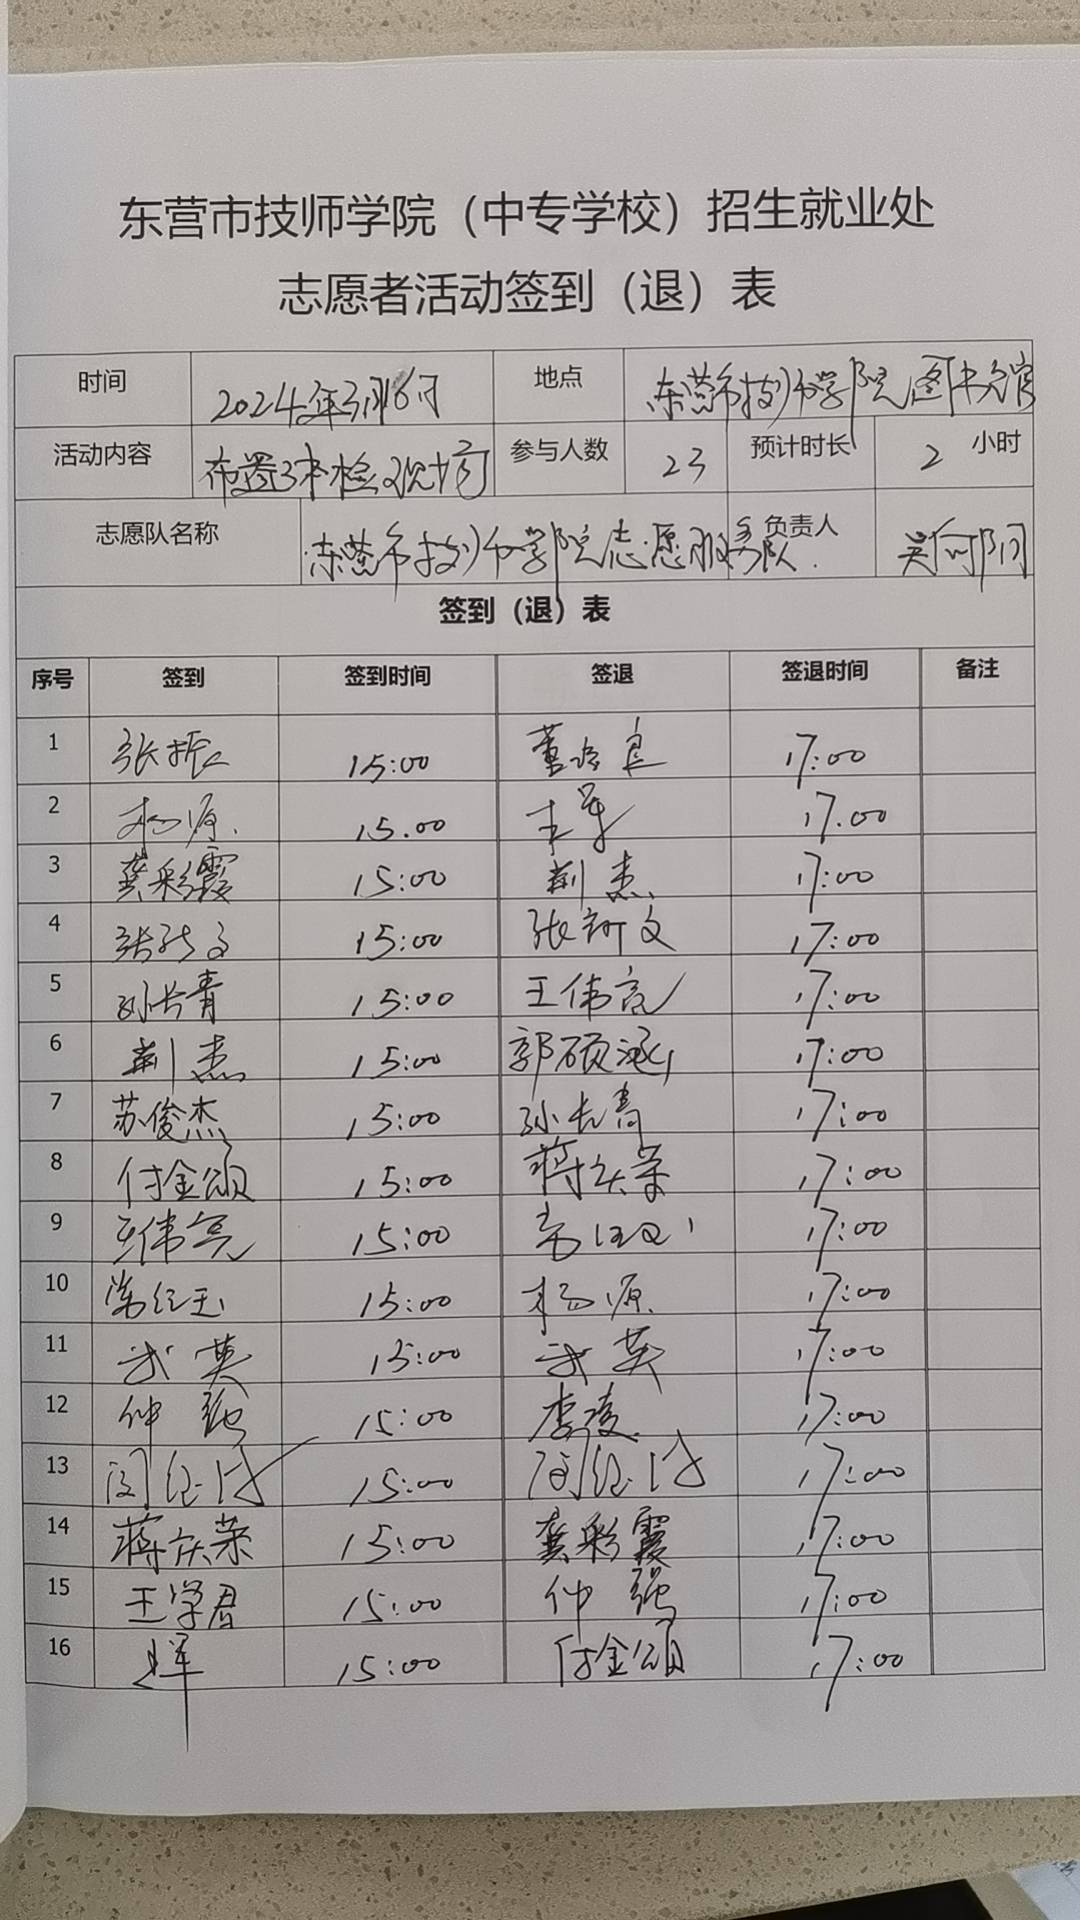 东营市技师学院（中专学校）招生就业处
志愿者活动签到（退）表
时间 2024年3月16日 地点 东营市技师学院图书馆
活动内容 布置 检 参与人数 23 预计时长 2 小时
志愿队名称 东营市技师学院志愿服务队 负责人 吴向阳
签到（退）表
序号 签到 签到时间 签退 签退时间 备注
1 张振 15:00 17:00
2 杨源 15.00 王军 17.00
3 龚彩霞 15:00 荆杰 17:00
4 15:00 张新文 17:00
5 孙长青 15:00 王伟亮 17:00
6 荆杰 15:00 郭硕涵 17:00
7 苏俊杰 15:00 孙长青 17:00
8 付金颂 15:00 蒋庆荣 17:00
9 王伟亮 15:00 17:00
10 15:00 杨源 17:00
11 武英 15:00 武英 17:00
12 仲强 15:00 李凌 17:00
13 15:00 17:00
14 蒋庆荣 15:00 龚彩霞 17:00
15 王学君 15:00 仲强 17:00
16 王军 15:00 付金颂 17:00